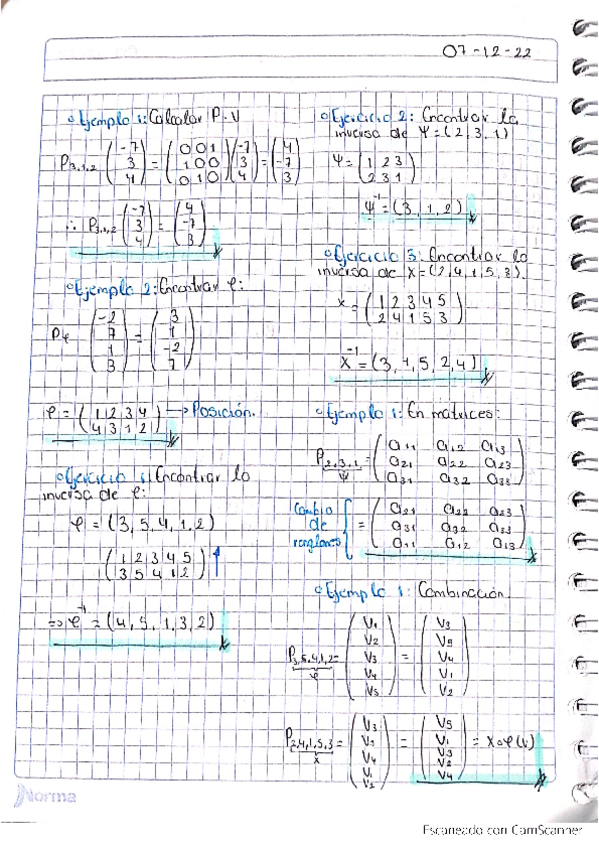 07-12-22
Ejemplo 1: Calcular P·V
P3,1,2 (-7 3 4) = (0 0 1 1 0 0 0 1 0) (-7 3 4) = (4 -7 3)
∴ P3,1,2 (-7 3 4) = (4 -7 3)
Ejemplo 2: Encontrar φ:
Pφ (-2 7 1 3) = (3 1 -2 7)
φ = (1 2 3 4
4 3 1 2) → Posición.
Ejercicio 1: Encontrar la
inversa de φ:
φ = (3, 5, 4, 1, 2)
(1 2 3 4 5
3 5 4 1 2) ↑
⇒ φ⁻¹ = (4, 5, 1, 3, 2)
Ejercicio 2: Encontrar la
inversa de Ψ = (2, 3, 1)
Ψ = (1 2 3
2 3 1)
Ψ⁻¹ = (3, 1, 2)
Ejercicio 3: Encontrar la
inversa de X = (2, 4, 1, 5, 3).
X = (1 2 3 4 5
2 4 1 5 3)
X⁻¹ = (3, 1, 5, 2, 4)
Ejemplo 1: En matrices:
P2,3,1 = (a11 a12 a13
Ψ a21 a22 a23
a31 a32 a33)
Cambio
de
renglones
= (a21 a22 a23
a31 a32 a33
a11 a12 a13)
Ejemplo 1: Combinación.
P3,5,4,1,2 = (V1 V2 V3 V4 V5) = (V3 V5 V4 V1 V2)
φ
P2,4,1,5,3 = (V3 V5 V4 V1 V2) = (V5 V1 V3 V2 V4) = X∘φ(v)
X
Norma
Escaneado con CamScanner